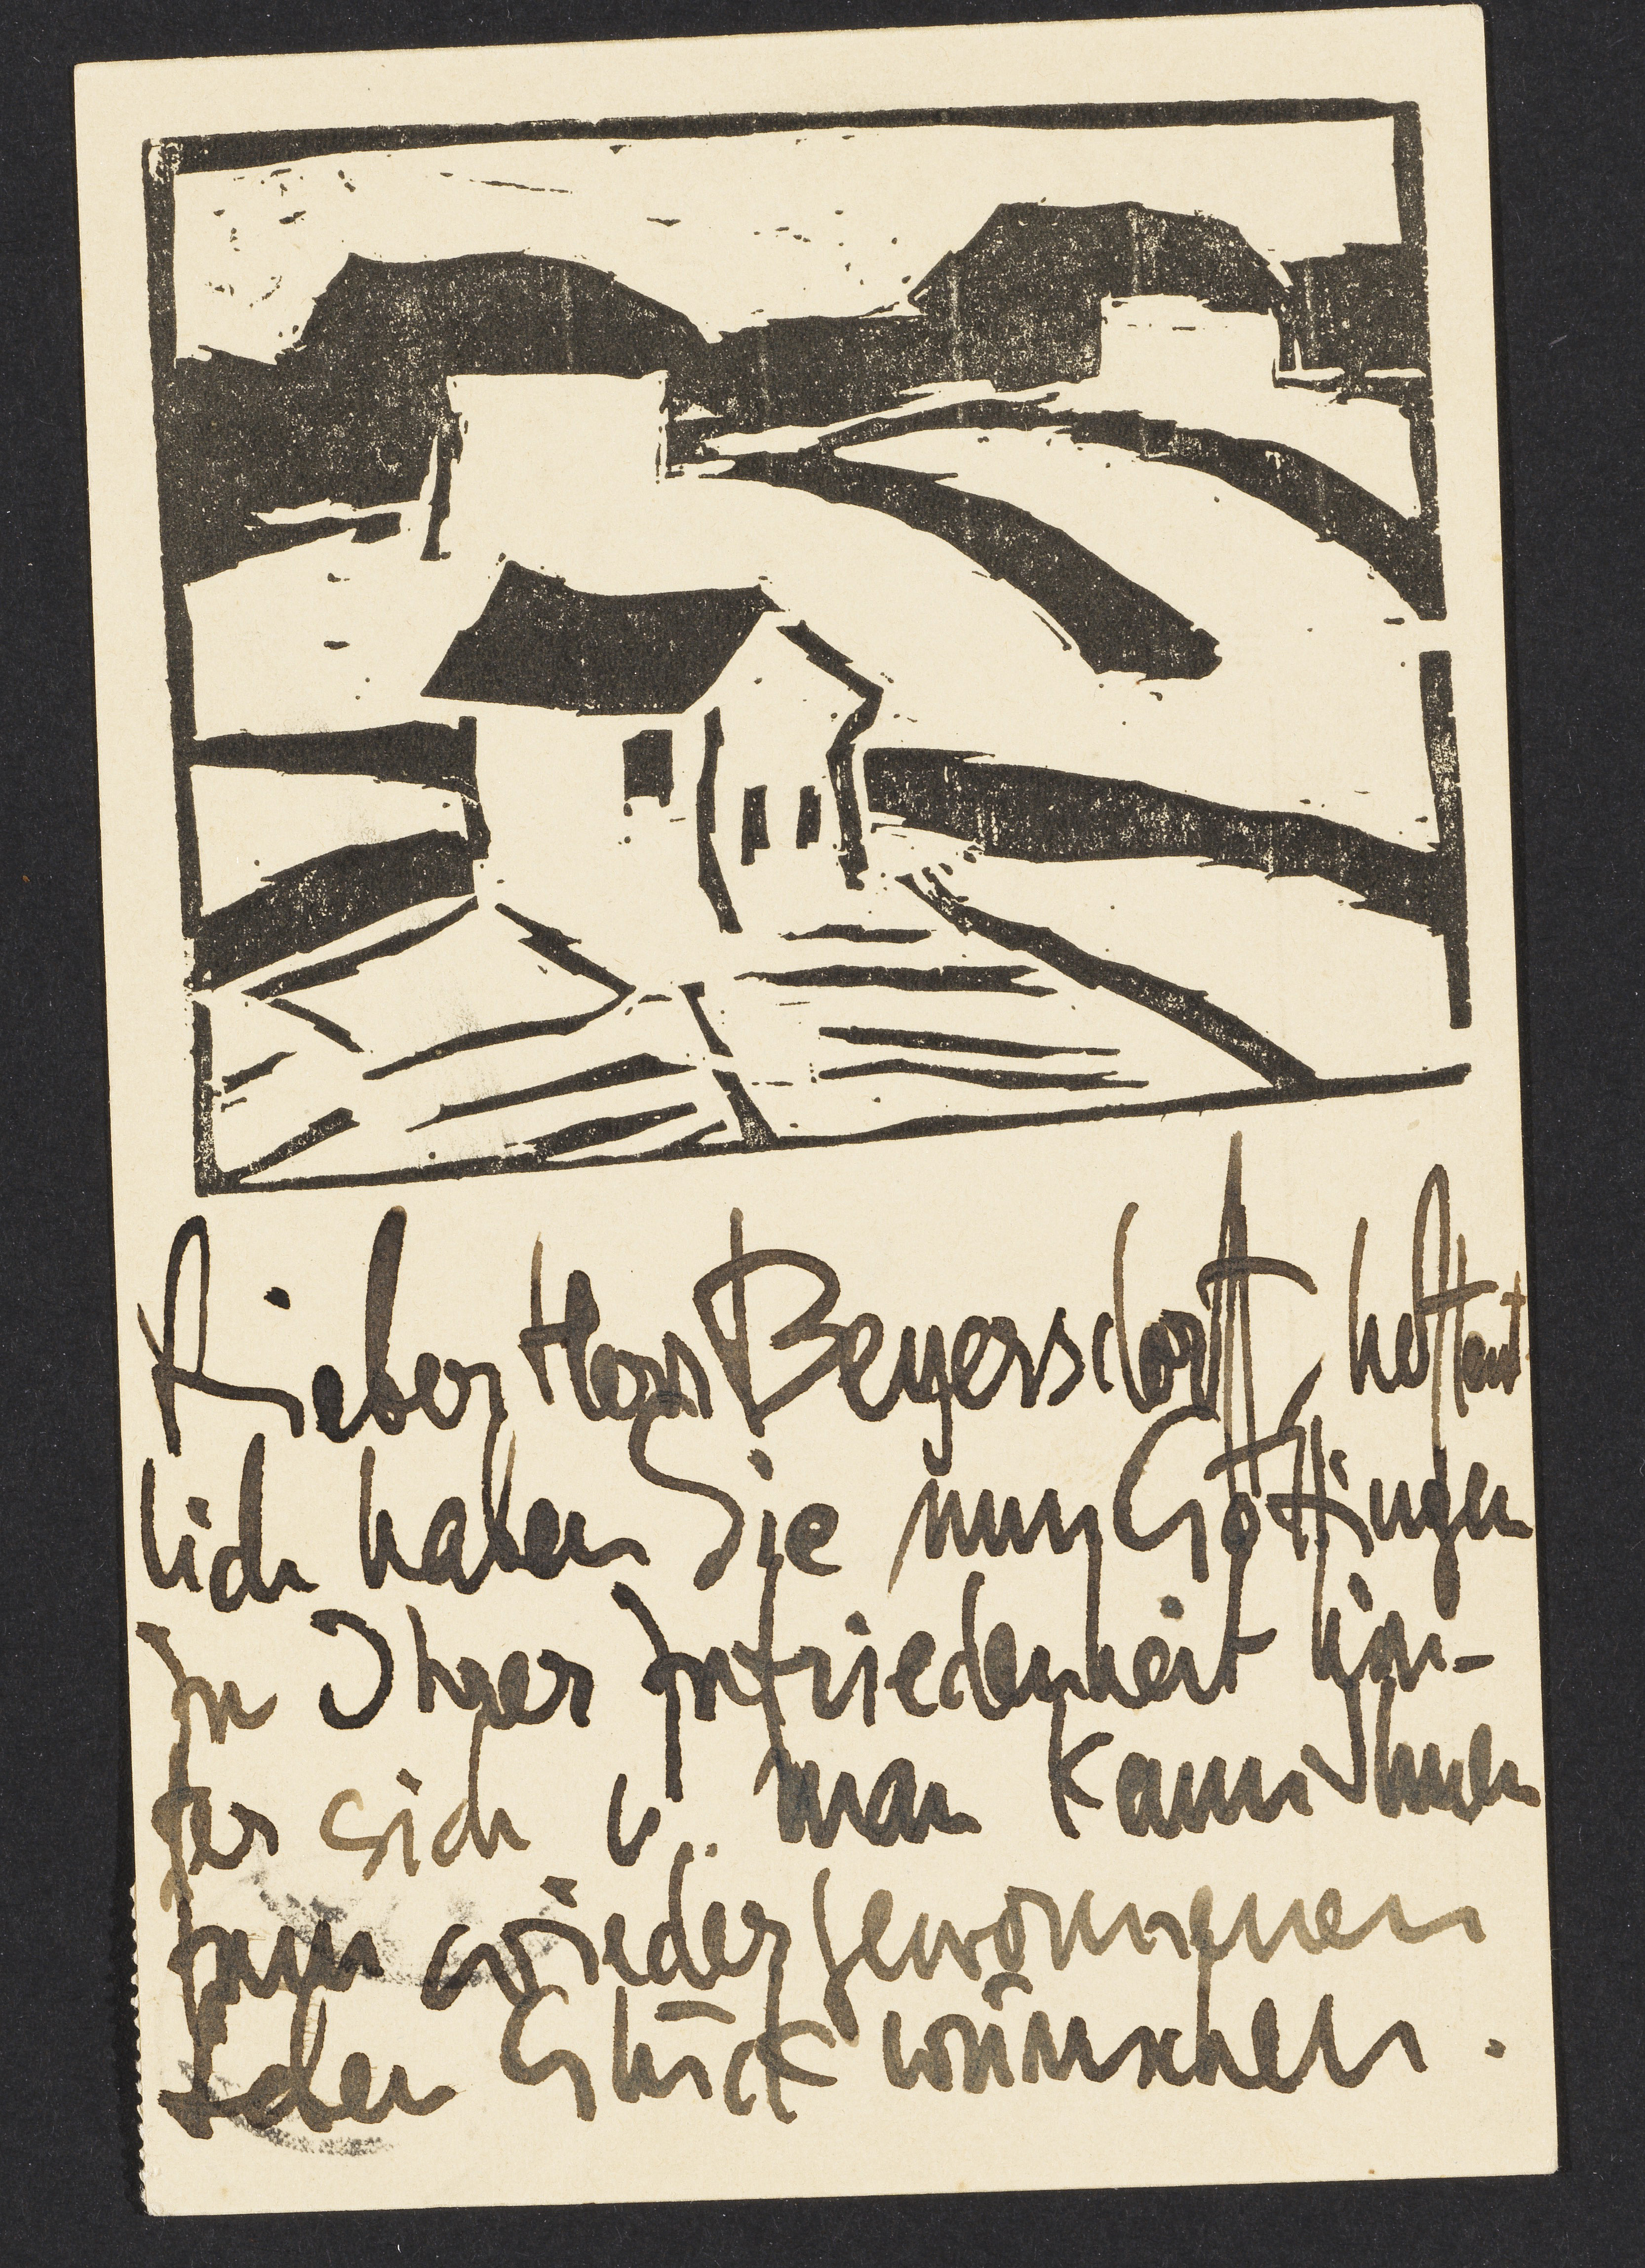 Lieber Herr Beyersdorff, hoffent-
lich haben Sie nun Göttingen
zu Ihrer Zufriedenheit hin-
ter sich u. man kann Ihnen
zum wiedergewonnenen
Eden Glück wünschen.